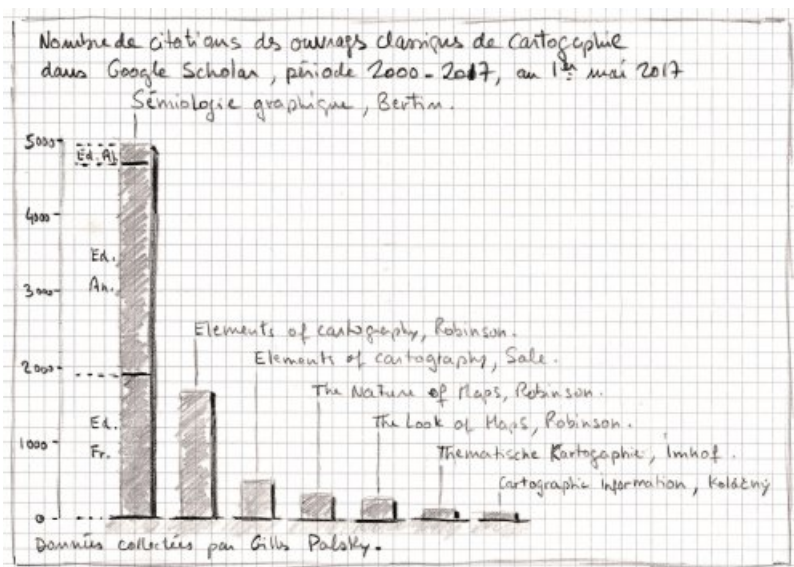 Nombre de citations ds ouvrags classiques de cartographie
dans Google Scholar, période 2000-2017, au 1er mai 2017
Sémiologie graphique, Bertin.
5000
Ed. Al.
4000
Ed.
An.
3000
Elements of cartography, Robinson.
Elements of cartography, Sale.
2000
The Nature of Maps, Robinson.
The Look of Maps, Robinson.
Ed.
1000
Fr.
Thematische Kartographie, Imhof.
Cartographic Information, Koláčný
0
Données collectées par Gilles Palsky.